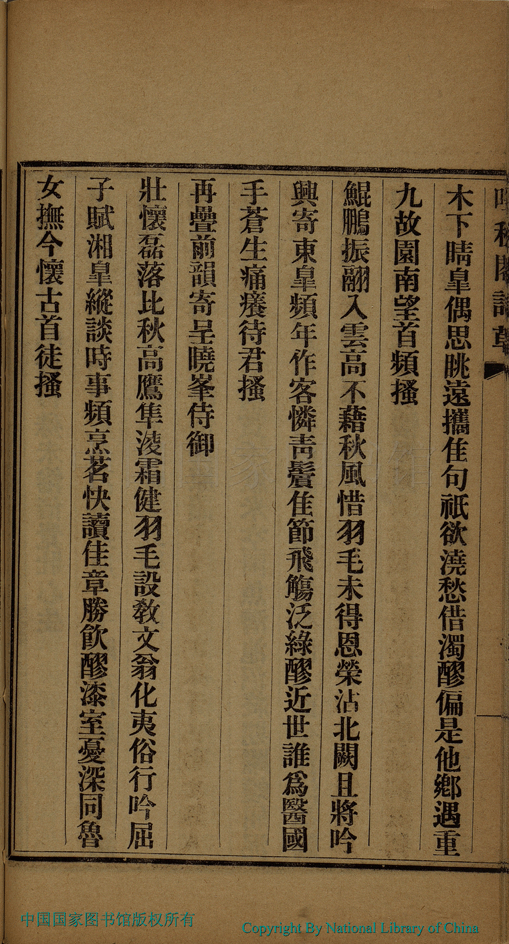 木下晴臯偶思眺遠攜佳句祇欲澆愁借濁醪偏是他鄉遇重
九故園南望首頻搔
鯤鵬振翮入雲高不藉秋風惜羽毛未得恩榮沾北闕且將吟
興寄東臯頻年作客憐靑鬢佳節飛觴泛綠醪近世誰爲醫國
手蒼生痛癢待君搔
再疊前韻寄呈曉峯侍御
壯懷磊落比秋高鷹隼淩霜健羽毛設敎文翁化夷俗行吟屈
子賦湘臯縱談時事頻烹茗快讀佳章勝飮醪漆室憂深同魯
女撫今懷古首徒搔
中国国家图书馆版权所有
Copyright By National Library of China